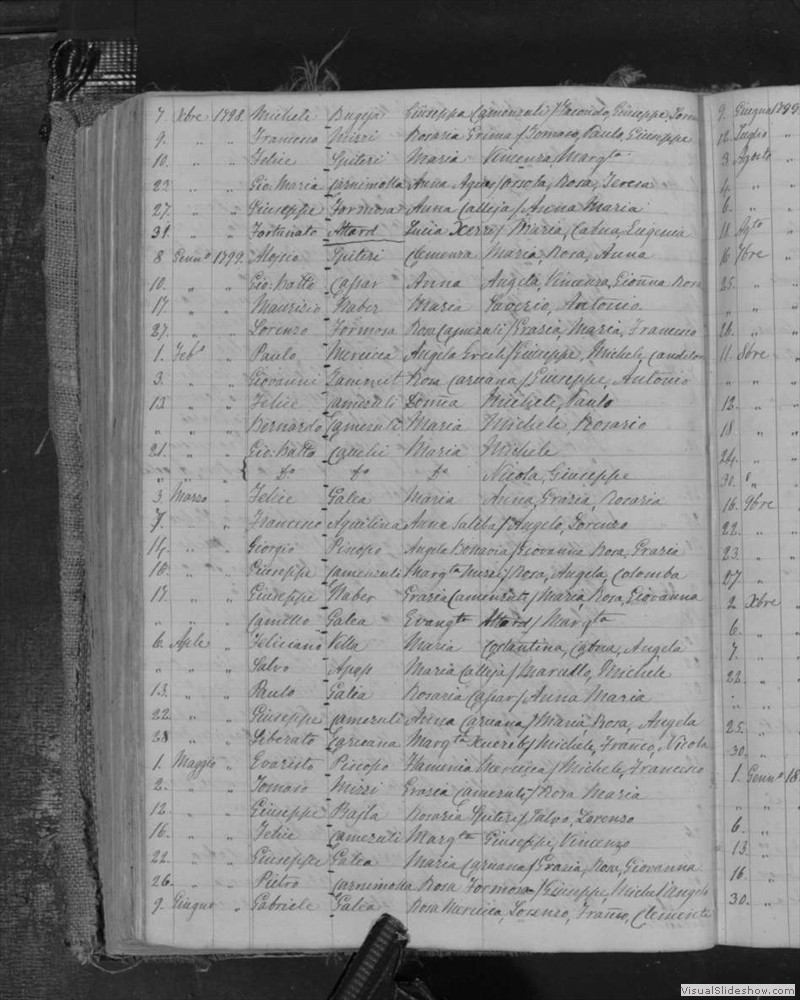 7 Xbre 1798 Michele Bugeja Giuseppa Camenzuli / Secondo, Giuseppe, Tom
9. „ „ Francesco Mizzi Rosaria Grima / Tomaso, Paulo, Giuseppe
10. „ „ Felice Spiteri Maria Vincenza, Margta
23 „ „ Gio: Maria Carnimolla Anna / Orsola, Rosa, Teresa
27. „ „ Giuseppe Formosa Anna Calleja / Anna Maria
31. „ „ Fortunato Attard Lucia Xerri / Maria, Catna, Eugenia
8 Gennº 1799. Aloisio Spiteri Clemenza Maria, Rosa, Anna
10. „ „ Gio: Batta Caspar Anna Angela, Vincenza, Gionna Rosa
17. „ „ Maurizio Haber Maria Saverio, Antonio
27. „ „ Lorenzo Formosa Rosa Camenzuli / Grazia, Maria, Francesco
1. Febº „ Paulo Mercieca Angela / Giuseppe, Michele, Candelor
3. „ „ Giovanni Zammit Rosa Caruana / Giuseppe, Antonio
13 „ „ Felice Camenzuli Gionna Michele, Paulo
„ „ „ Bernardo Camenzuli Maria Michele Rosario
21. „ „ Gio: Batta Cauchi Maria Michele
„ „ „ { Dº Dº Dº Nicola, Giuseppe
3 Marzo „ Felice Galea Maria Anna, Grazia, Rosaria
7. „ „ Francesco Aquilina Anna Saliba / Angelo, Lorenzo
14. „ „ Giorgio Piscopo Angela Bonavia / Giovanna Rosa, Grazia
16. „ „ Giuseppe Camenzuli Margta Mizzi / Rosa, Angela, Colomba
17. „ „ Giuseppe Haber Grazia Camenzuli / Maria Rosa, Giovanna
„ „ „ Camillo Galea Evangta Attard / Margta
6. Aple „ Feliciano Vella Maria Costantina, Catna, Angela
„ „ „ Salvo Apap Maria Calleja / Marcello, Michele
13. „ „ Paulo Galea Rosaria Caspar / Anna Maria
22. „ „ Giuseppe Camenzuli Anna Caruana / Maria Rosa, Angela
28 „ „ Liberato Caruana Margta Xuereb / Michele, Franco, Nicola
1. Maggio „ Evaristo Piscopo Flaminia Mercieca / Michele, Francesco
2. „ „ Tomaso Mizzi Grazia Camenzuli / Rosa Maria
12. „ „ Giuseppe Bajla Rosaria Spiteri / Salvo, Lorenzo
16. „ „ Felice Camenzuli Margta Giuseppe, Vincenzo
22. „ „ Giuseppe Galea Maria Caruana / Grazia, Rosa, Giovanna
26. „ „ Pietro Carnimolla Rosa Formosa / Giuseppe, Michel'Angelo
9. Giugno „ Gabriele Galea Rosa Mercieca, Lorenzo, Franco, Clemente
9. Giugno 1799.
12. Luglio „
3. Agosto „
4. „ „
6. „ „
11. Agto „
6 7bre „
25. „ „
„ „ „
26. „ „
11. 8bre „
„ „ „
12. „ „
18 „ „
24. „ „
30. „
16. 9bre „
22. „ „
23. „ „
27. „ „
2. Xbre „
6. „ „
7. „ „
22. „ „
„ „ „
25. „ „
30. „ „
1. Gennº 18
„ „ „
6. „
13. „
16. „
30. „
VisualSlideshow.com